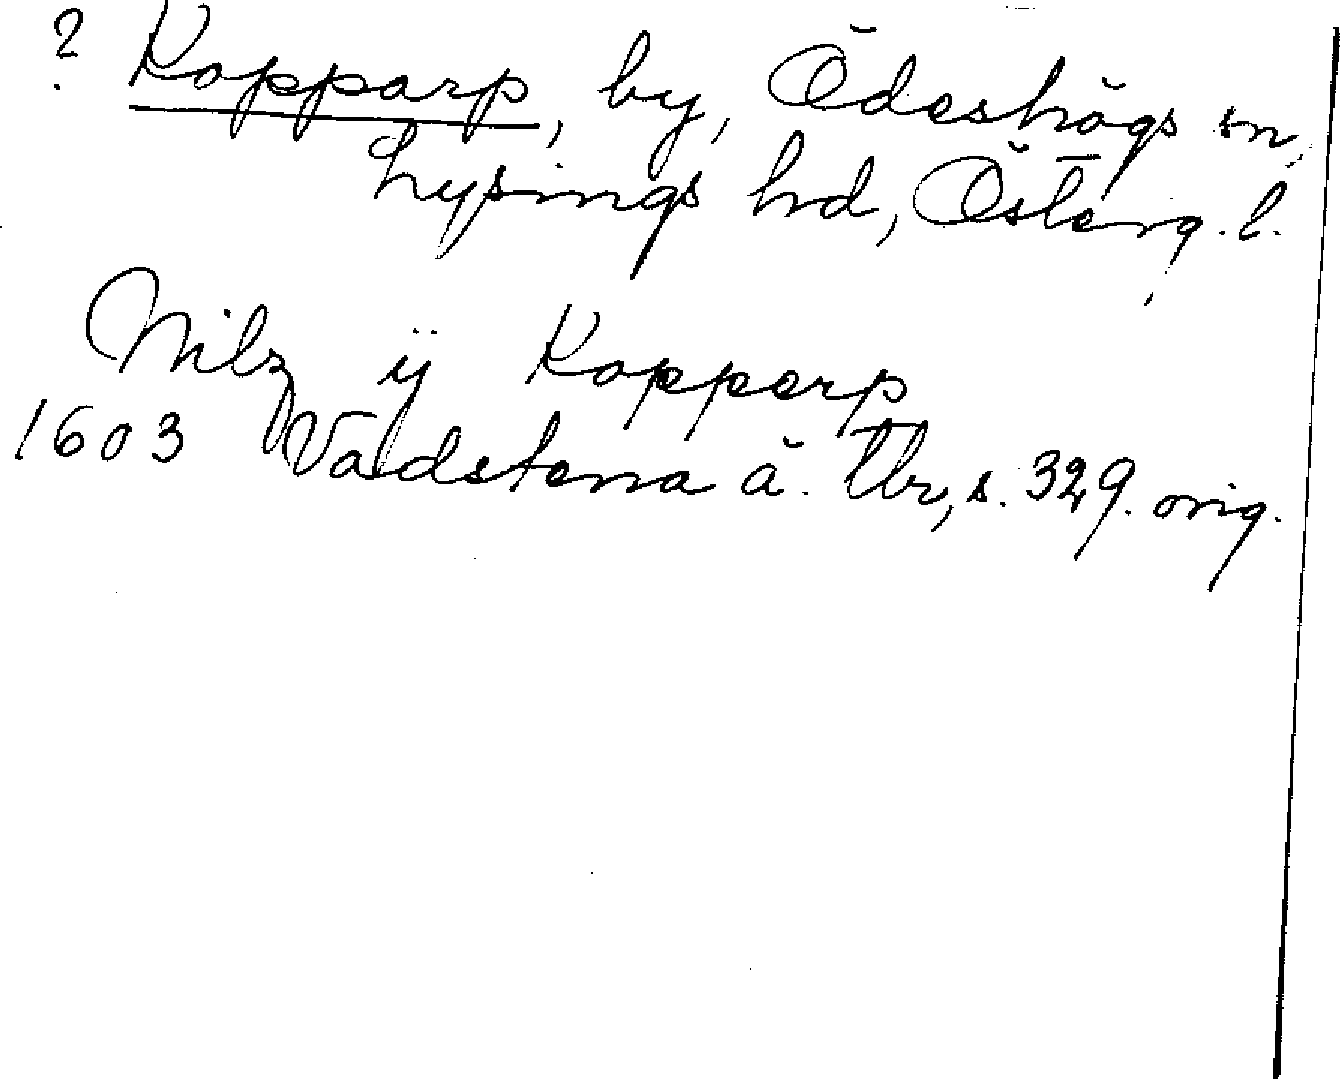 ? Kopparp, by, Ödeshögs sn,
Lysings hd, Österg. l.
Nilz ÿ Kopperp
1603 Vadstena ä. Tbr, s. 329. orig.